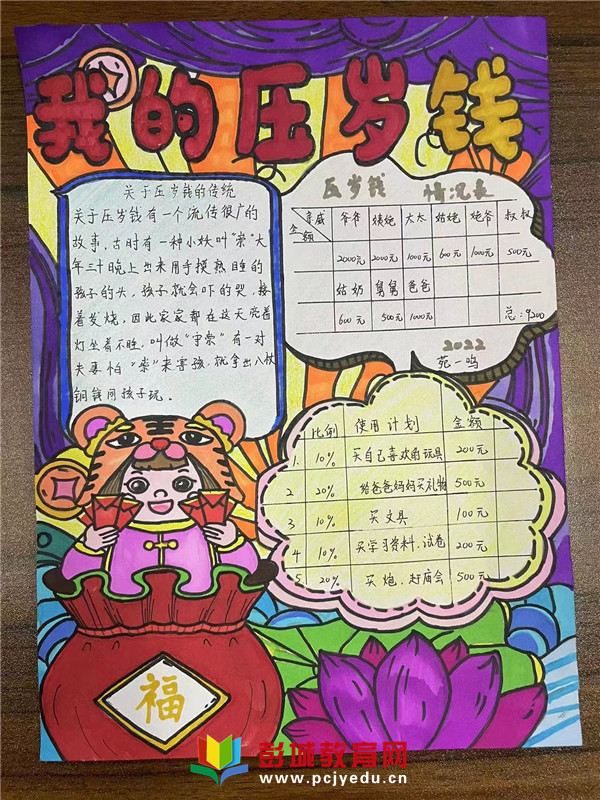 我的压岁钱
关于压岁钱的传统
关于压岁钱有一个流传很广的
故事,古时有一种小妖叫“祟”大
年三十晚上出来用手摸熟睡的
孩子的头,孩子就会吓的哭,接
着发烧,因此家家都在这天亮着
灯坐着不睡,叫做“守祟”有一对
夫妻怕“祟”来害孩,就拿出八枚
铜钱同孩子玩。
压岁钱 情况表
亲戚 金额 爷爷 姨姥 太太 姑姥 姥爷 叔叔
2000元 2000元 1000元 600元 1000元 500元
姑奶 舅舅 爸爸
600元 500元 1000元 总:9200
2022
苑一鸣
比例 使用计划 金额
1. 10% 买自己喜欢的玩具 200元
2 20% 给爸爸妈妈买礼物 500元
3 10% 买文具 100元
4 10% 买学习资料、试卷 200元
5 20% 买炮、赶庙会 500元
福
彭城教育网
www.pcjyedu.cn